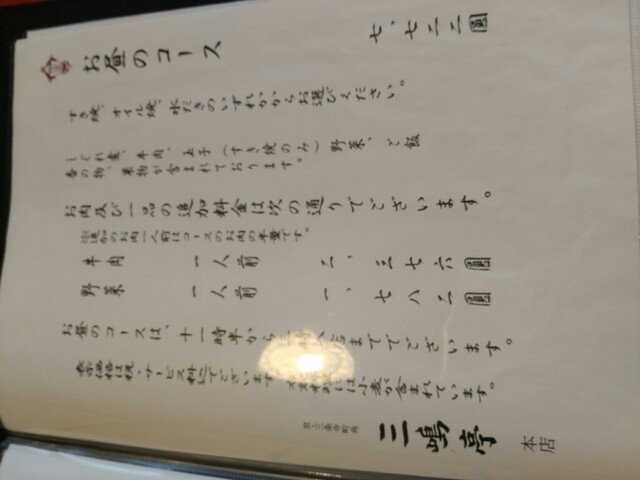 お昼のコース 七、七二二圓
すき焼、オイル焼、水だきのいずれかからお選びください。
しぐれ煮、牛肉、玉子(すき焼のみ)野菜、ご飯
香の物、果物が含まれております。
お肉及び一品の追加料金は次の通りでございます。
※追加のお肉一人前はコースのお肉の半量です。
牛肉 一人前 二、三七六圓
野菜 一人前 一、七八二圓
お昼のコースは、十一時半から まででございます。
表示価格は税・サービス料込でございます には小麦が含まれています。
京・三条寺町角
三嶋亭 本店